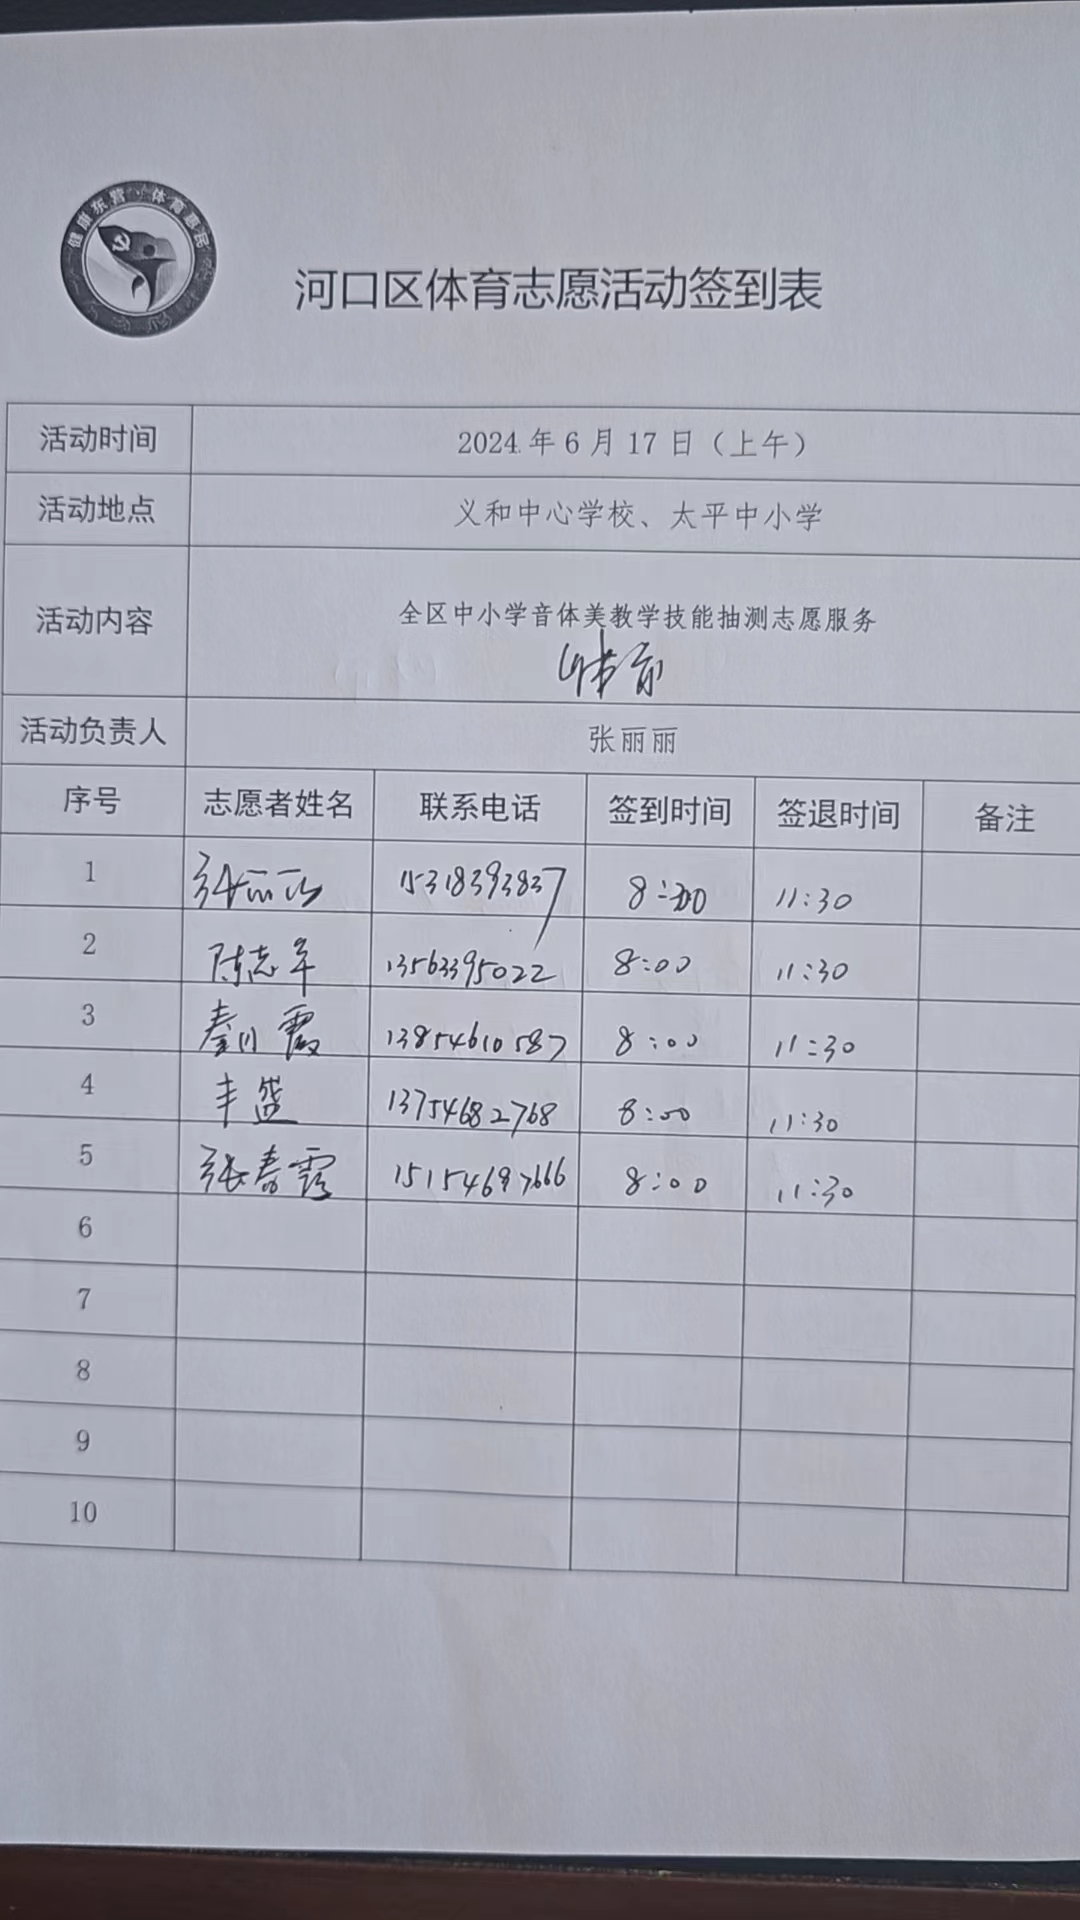 健康东营·体育惠民
河口区体育志愿活动签到表
活动时间 2024年6月17日（上午）
活动地点 义和中心学校、太平中小学
活动内容 全区中小学音体美教学技能抽测志愿服务
活动负责人 张丽丽
序号 志愿者姓名 联系电话 签到时间 签退时间 备注
1 张丽丽 15318393837 8:00 11:30
2 陈志军 13563395022 8:00 11:30
3 秦川霞 13854610587 8:00 11:30
4 丰盛 13754682768 8:00 11:30
5 张春霞 15154697666 8:00 11:30
6
7
8
9
10